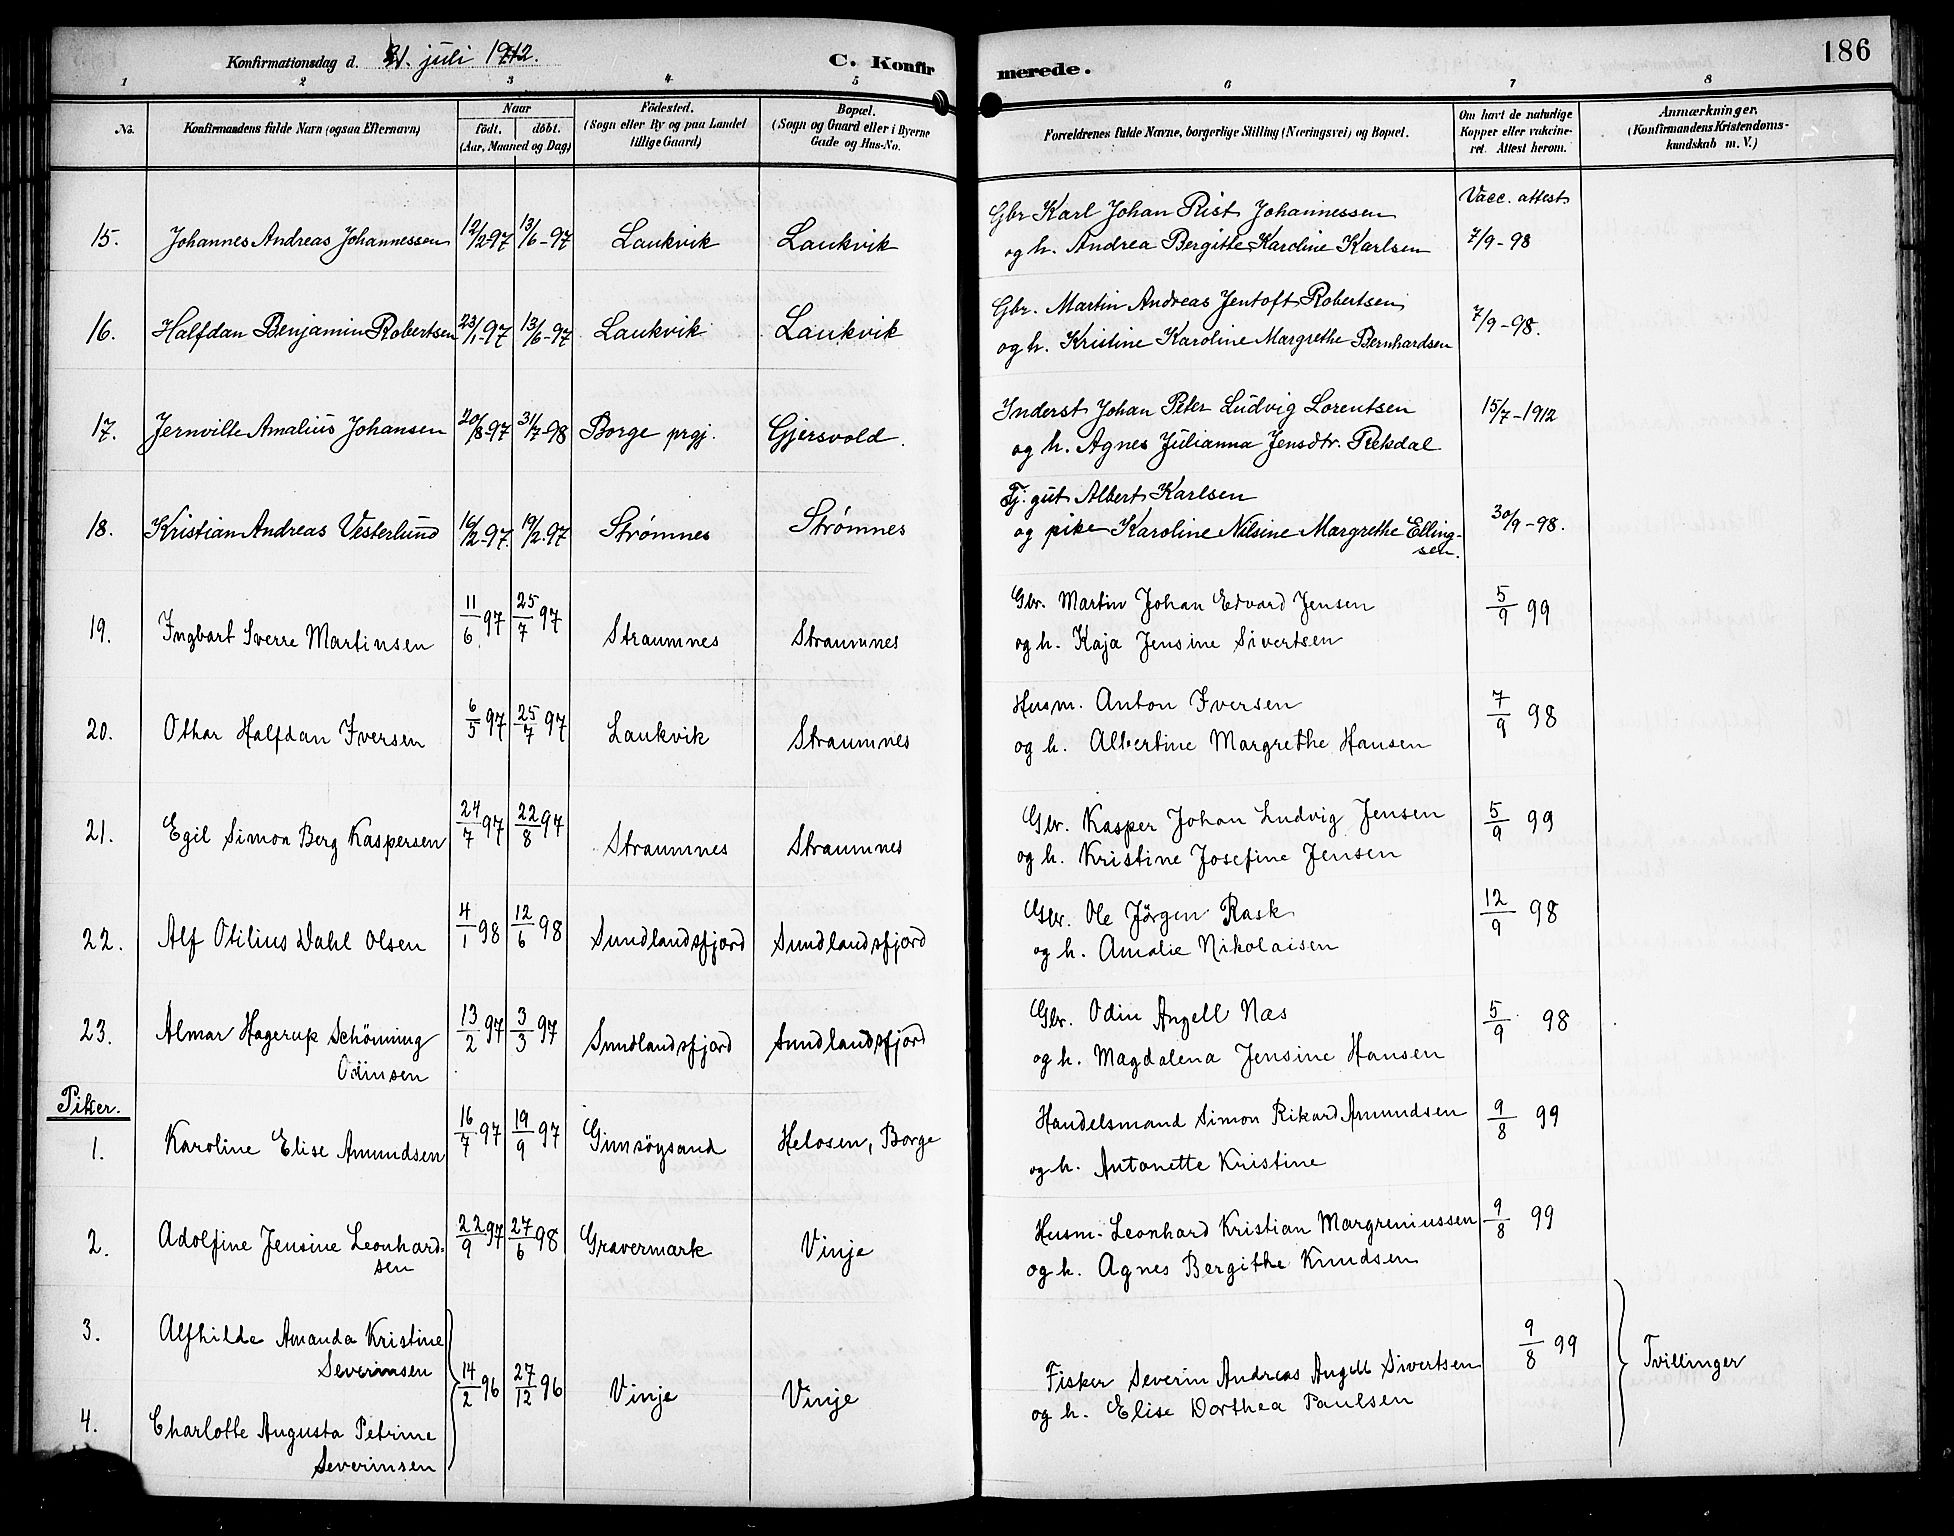 Konfirmationsdag d. 21. juli 1912.
C. Konfirmerede.
186
1 2 3 4 5 6 7 8
No.
Konfirmandens fulde Navn (ogsaa Efternavn)
Naar
födt. döbt.
(Aar, Maaned og Dag)
Födested.
(Sogn eller By og paa Landet
tillige Gaard)
Bopæl.
(Sogn og Gaard eller i Byerne
Gade og Hus-No.
Forældrenes fulde Navne, borgerlige Stilling (Næringsvei) og Bopæl.
Om havt de naturlige
Kopper eller vakcine-
ret. Attest herom.
Anmærkninger,
(Konfirmandens Kristendoms-
kundskab m. V.)
Vacc. attest
15. Johannes Andreas Johannessen 12/2-97 13/6-97 Laukvik Laukvik Gbr Karl Johan Rist Johannessen
og h. Andrea Bergitte Karoline Karlsen 7/9-98
16. Halfdan Benjamin Robertsen 23/1-97 13/6-97 Laukvik Laukvik Gbr. Martin Andreas Jentoft Robertsen
og h. Kristine Karoline Margrethe Bernhardsen 7/9-98.
17. Jernvilte Amalius Johansen 20/8-97 31/7-98 Borge prgj. Gjersvold. Inderst Johan Peter Ludvig Lorentsen
og h. Agnes Julianna Jensdtr. Reksdal 15/7-1912
18. Kristian Andreas Vesterlund 16/2-97. 19/2-97 Strømnes Strømnes Tj. gut Albert Karlsen
og pike Karoline Nilsine Margrethe Elling-
sen. 30/9-98.
19. Ingbart Sverre Martinsen 11/6 97 25/7 97 Straumnes Straumnes Gbr. Martin Johan Edvard Jensen
og h. Kaja Jensine Sivertsen 5/9 99
20. Othar Halfdan Iversen 6/5 97 25/7 97 Laukvik Straumnes Husm. Anton Iversen
og h. Albertine Margrethe Hansen 7/9 98
21. Egil Simon Berg Kaspersen 24/7 97 22/8 97 Straumnes Straumnes Gbr. Kasper Johan Ludvig Jensen
og h. Kristine Josefine Jensen 5/9 99
22. Alf Otilius Dahl Olsen 4/1 98 12/6 98 Sundlandsfjord Sundlandsfjord Gbr. Ole Jörgen Rask
og h. Amalie Nikolaisen 12/9 98
23. Almar Hagerup Schönning
Odinsen 13/2 97 3/3 97 Sundlandsfjord Sundlandsfjord Gbr. Odin Angell Næs
og h. Magdalena Jensine Hansen 5/9 98
Piker.
1. Karoline Elise Amundsen 16/7 97 19/9 97 Gimsöysand Helosen, Borge Handelsmand Simon Rikard Amundsen
og h. Antonette Kristine 9/8 99
2. Adolfine Jensine Leonhard-
sen 22/9 97 27/6 98 Gravermark Vinje Husm. Leonhard Kristian Margreniussen
og h. Agnes Bergithe Knudsen 9/8 99
3. Alfhilde Amanda Kristine
Severinsen
14/2 96 27/12 96 Vinje Vinje Fisker Severin Andreas Angell Sivertsen
og h. Elise Dorthea Paulsen 9/8 99 Tvillinger
4. Charlotte Augusta Petrine
Severinsen